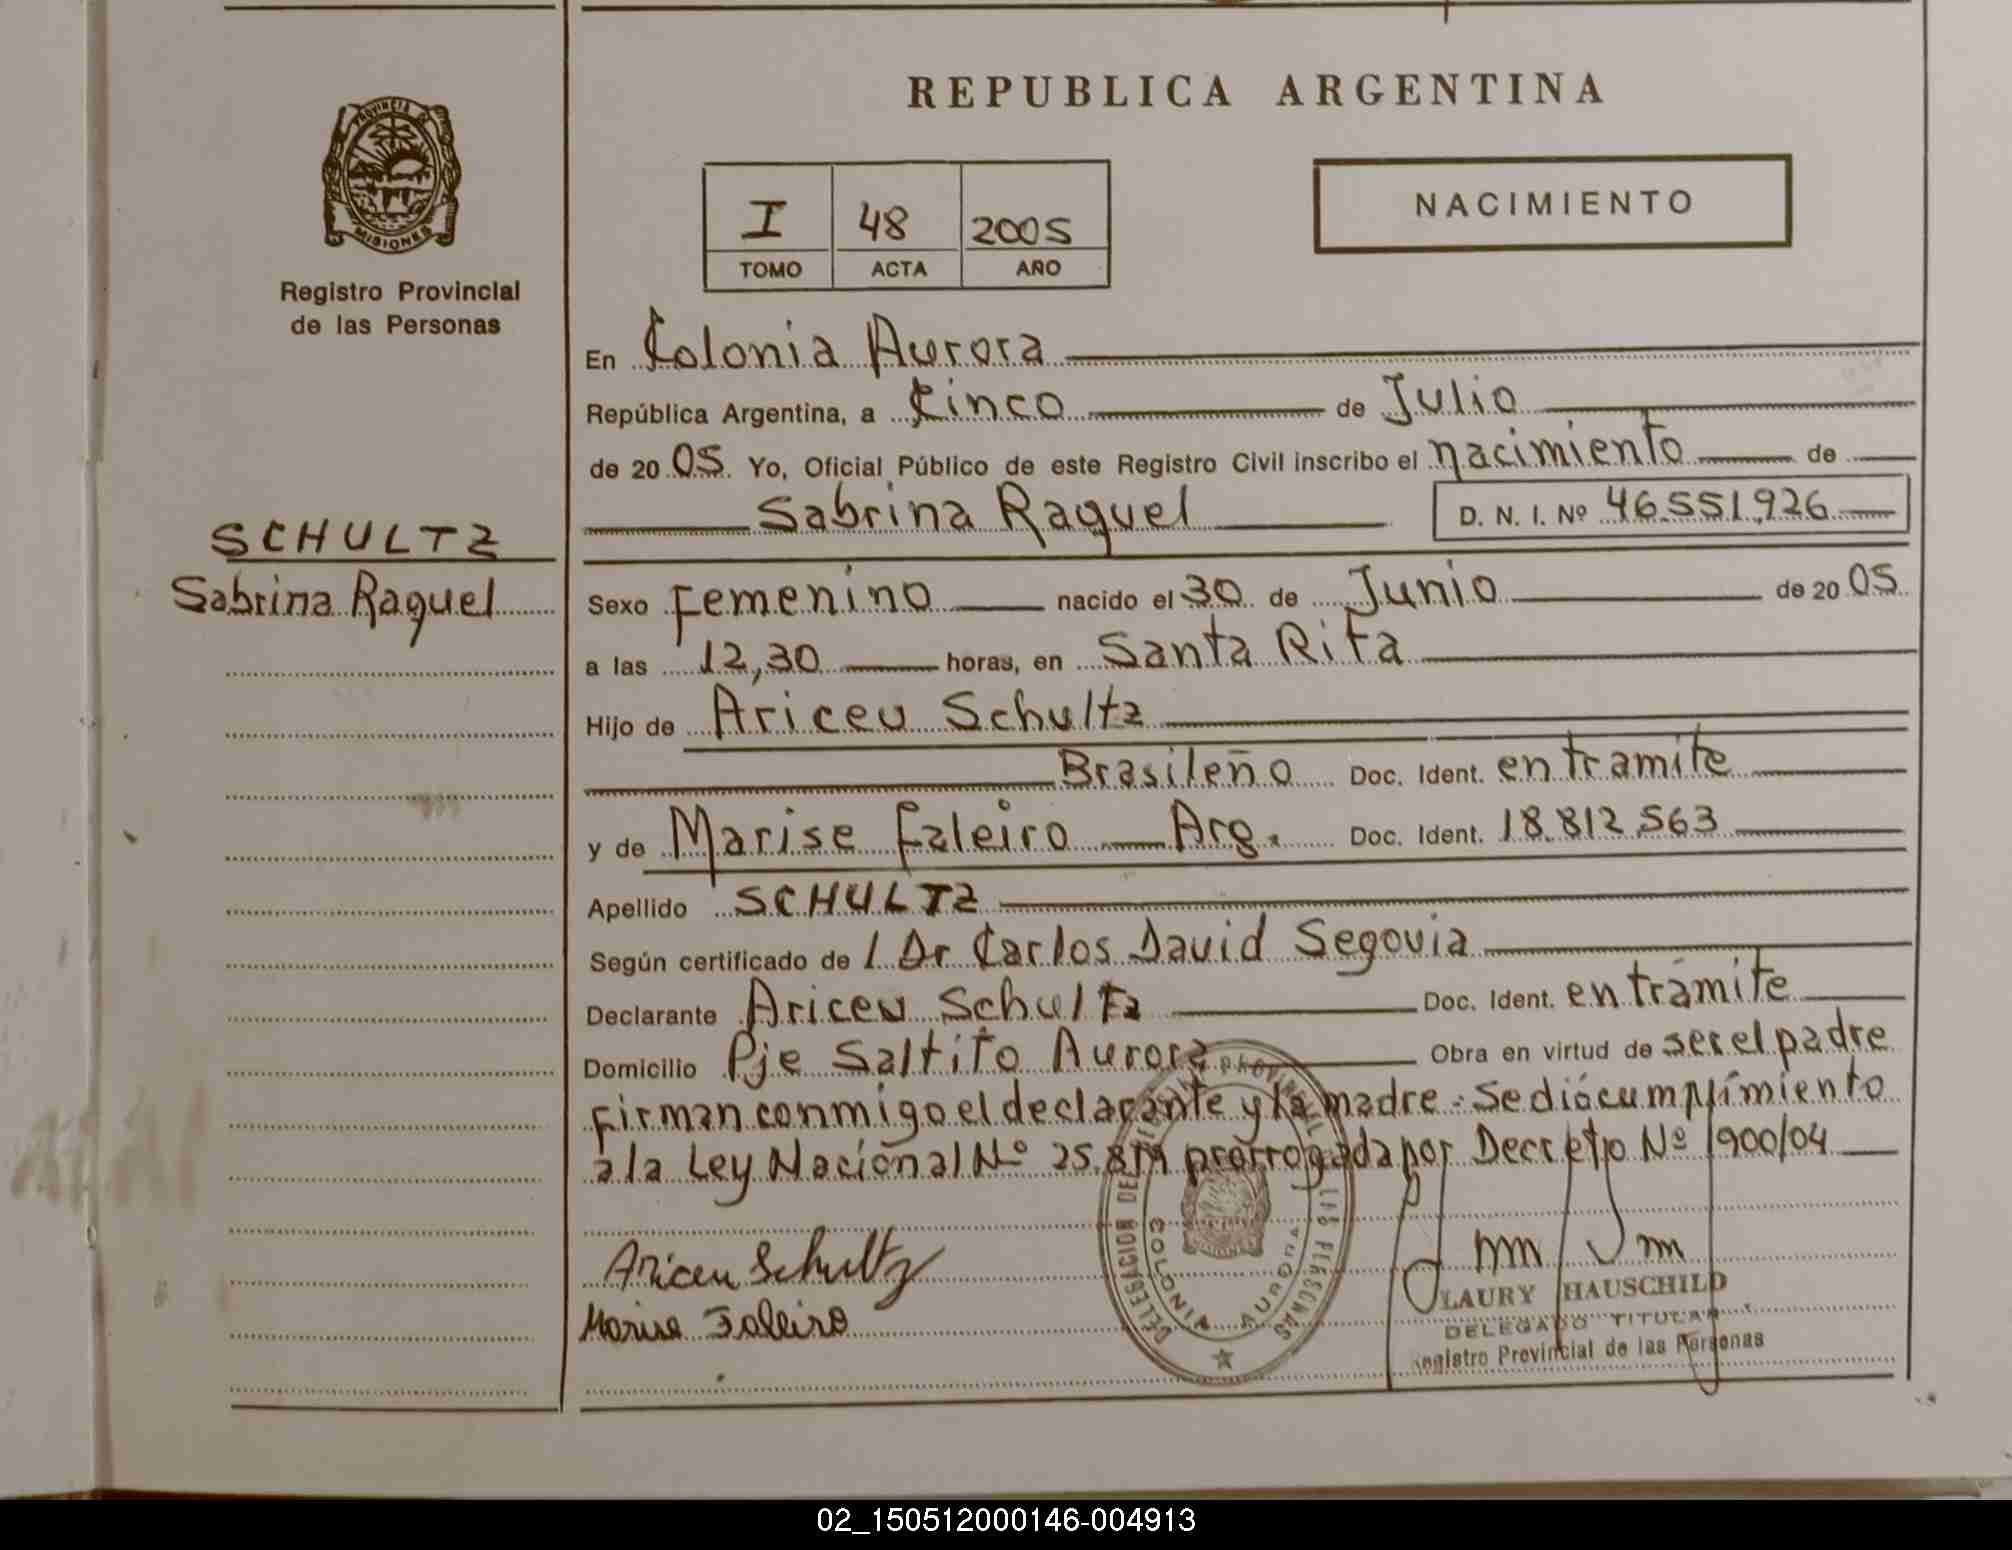 REPUBLICA ARGENTINA
PROVINCIA DE
MISIONES
Registro Provincial
de las Personas
SCHULTZ
Sabrina Raquel
I 48 2005
TOMO ACTA AÑO
NACIMIENTO
En Colonia Aurora
República Argentina, a Cinco de Julio
de 20 05. Yo, Oficial Público de este Registro Civil inscribo el nacimiento de
Sabrina Raquel D. N. I. Nº 46.551.926
Sexo Femenino nacido el 30 de Junio de 20 05
a las 12,30 horas, en Santa Rita
Hijo de Ariceu Schultz
Brasileño Doc. Ident. en tramite
y de Marise Faleiro Arg. Doc. Ident. 18.812.563
Apellido SCHULTZ
Según certificado de l Dr Carlos David Segovia
Declarante Ariceu Schultz Doc. Ident. en trámite
Domicilio Pje Saltito Aurora Obra en virtud de ser el padre
firman conmigo el declarante y la madre. Se dió cumplimiento
a la Ley Nacional Nº 25.819 prorrogada por Decreto Nº 1900/04
Ariceu Schultz
Marise Faleiro
COLONIA AURORA
LAURY HAUSCHILD
DELEGADO TITULAR
Registro Provincial de las Personas
02_150512000146-004913